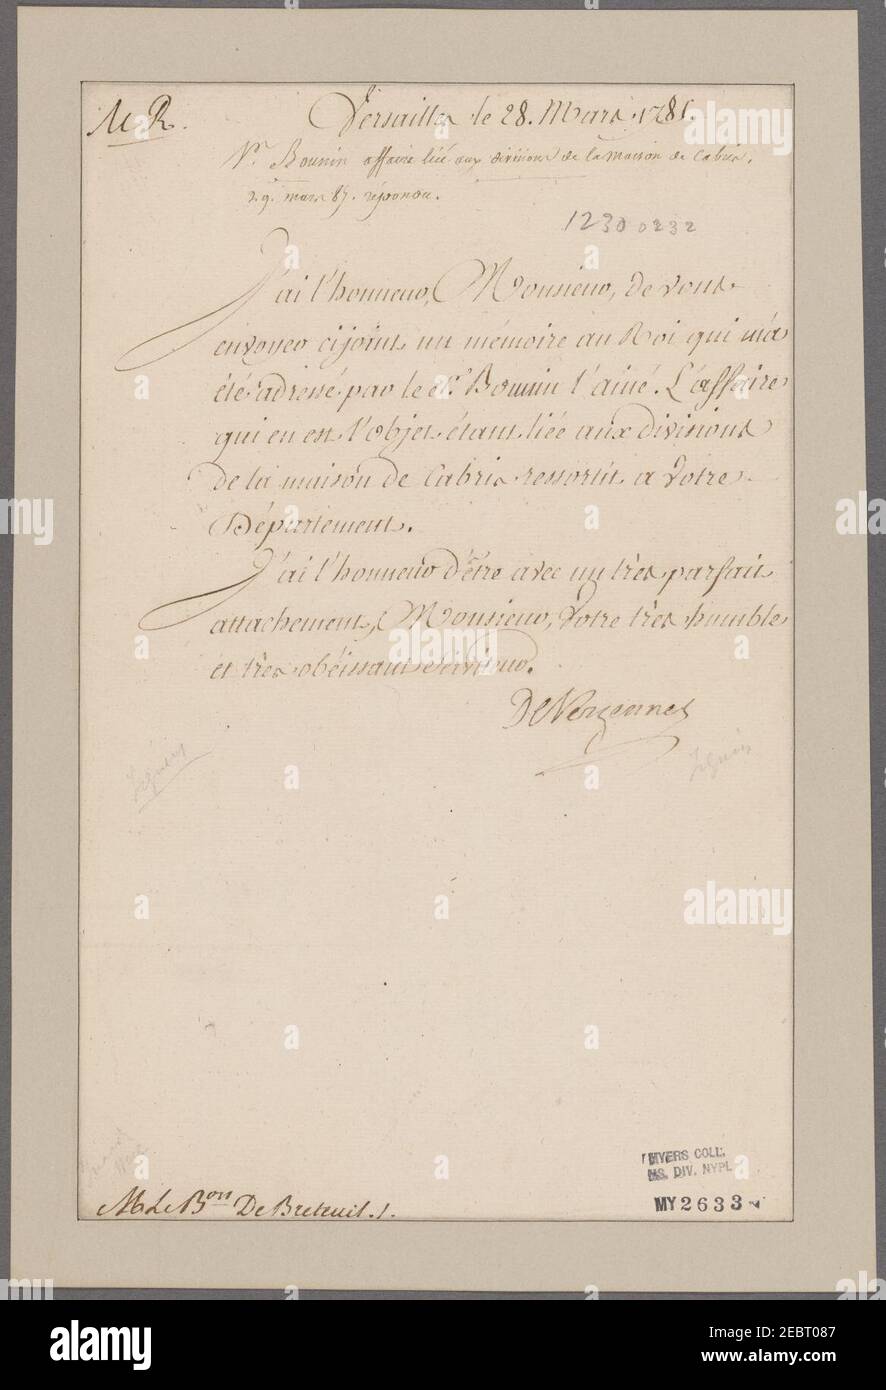 M R.
Versailles le 28. Mars 1786.
Sr. Bounin affaire liée aux divisions de la maison de Cabris.
29. mars 87. répondu.
1230 0232
J'ai l'honneur, Monsieur, de vous
envoyer cijoint un mémoire au Roi qui m'a
été adressé par le Sr. Bounin l'ainé. L'affaire
qui en est l'objet étant liée aux divisions
de la maison de Cabris ressortit a Votre
Département.
J'ai l'honneur d'être avec un très parfait
attachement, Monsieur, Votre très humble
et très obéissant Serviteur.
De Vergennes
M. Le Bon De Breteuil./.
MYERS COLL.
MS. DIV. NYPL
MY 2633
alamy
Image ID: 2EBT087
www.alamy.com